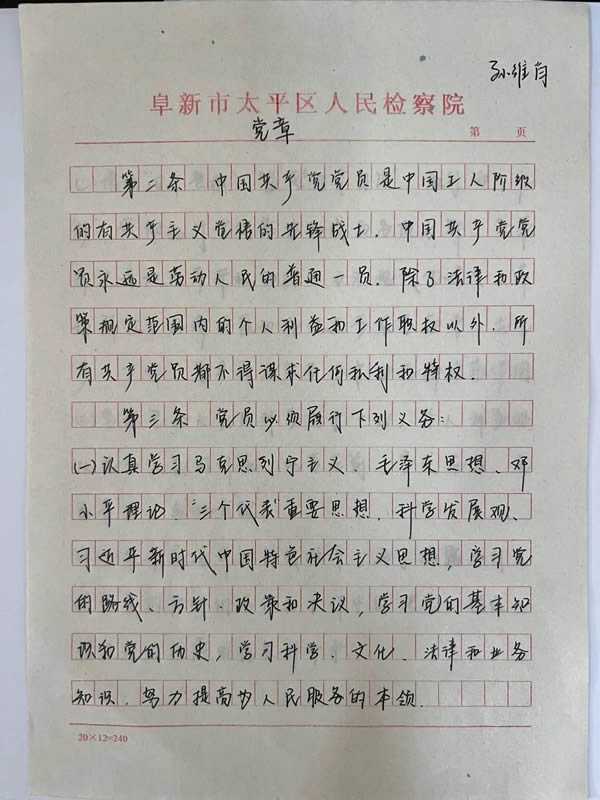 孙维肖
阜新市太平区人民检察院
党章
第 页
第二条 中国共产党党员是中国工人阶级
的有共产主义觉悟的先锋战士。中国共产党党
员永远是劳动人民的普通一员。除了法律和政
策规定范围内的个人利益和工作职权以外，所
有共产党员都不得谋求任何私利和特权。
第三条 党员必须履行下列义务：
(一)认真学习马克思列宁主义、毛泽东思想、邓
小平理论、“三个代表”重要思想、科学发展观、
习近平新时代中国特色社会主义思想，学习党
的路线、方针、政策和决议，学习党的基本知
识和党的历史，学习科学、文化、法律和业务
知识，努力提高为人民服务的本领。
20×12=240